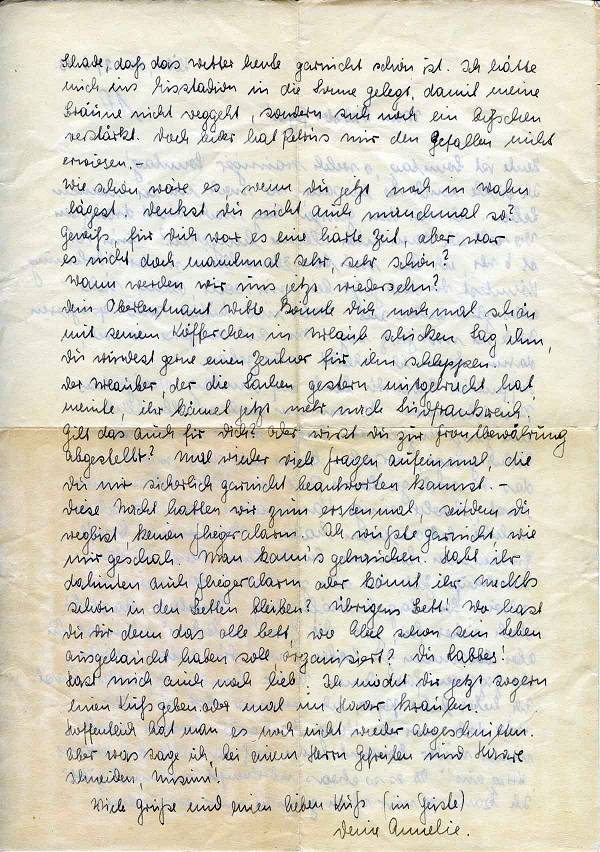 Schade, daß das wetter heute garnicht schön ist. Ich hätte
mich ins Eisstadion in die Sonne gelegt, damit meine
Bräune nicht weggeht, sondern sich noch ein bißchen
verstärkt. Doch leider hat Petrus mir den Gefallen nicht
erwiesen.-
Wie schön wäre es, wenn du jetzt noch in Wahn
lägest. Denkst du nicht auch manchmal so?
Gewiß, für dich war es eine harte Zeit, aber war
es nicht doch manchmal sehr, sehr schön?
Wann werden wir uns jetzt wiedersehn?
Dein Oberleutnant könnte dich nochmal schön
mit seinem Köfferchen in Urlaub schicken. Sag' ihm,
du würdest gerne einen Zentner für ihn schleppen.
Der Urlauber, der die Sachen gestern mitgebracht hat,
meinte, ihr kämet jetzt mehr nach Südfrankreich.
Gilt das auch für dich? Oder wirst du zur Frontbewährung
abgestellt? Mal wieder viele Fragen aufeinmal, die
du mir sicherlich garnicht beantworten kannst.-
Diese Nacht hatten wir zum erstenmal, seitdem du
wegbist, keinen Fliegeralarm. Ich wußte garnicht, wie
mir geschah. Man kann's gebrauchen. Habt ihr
dahinten auch Fliegeralarm oder könnt ihr nachts
schön in den Betten bleiben? Übrigens Bett! Wo hast
du dir denn das olle Bett, wo Abel schon sein Leben
ausgehaucht haben soll, organisiert? Du Rabbes!
Hast mich auch noch lieb? Ich möcht dir jetzt sogern
einen Kuß geben oder mal im Haar kraulen.
Hoffentlich hat man es noch nicht wieder abgeschnitten.
Aber was sage ich, bei einem Herrn Gefreiten und Haare
schneiden,
Viele Grüße und einen lieben Kuß (im Geiste)
Deine Annelie.